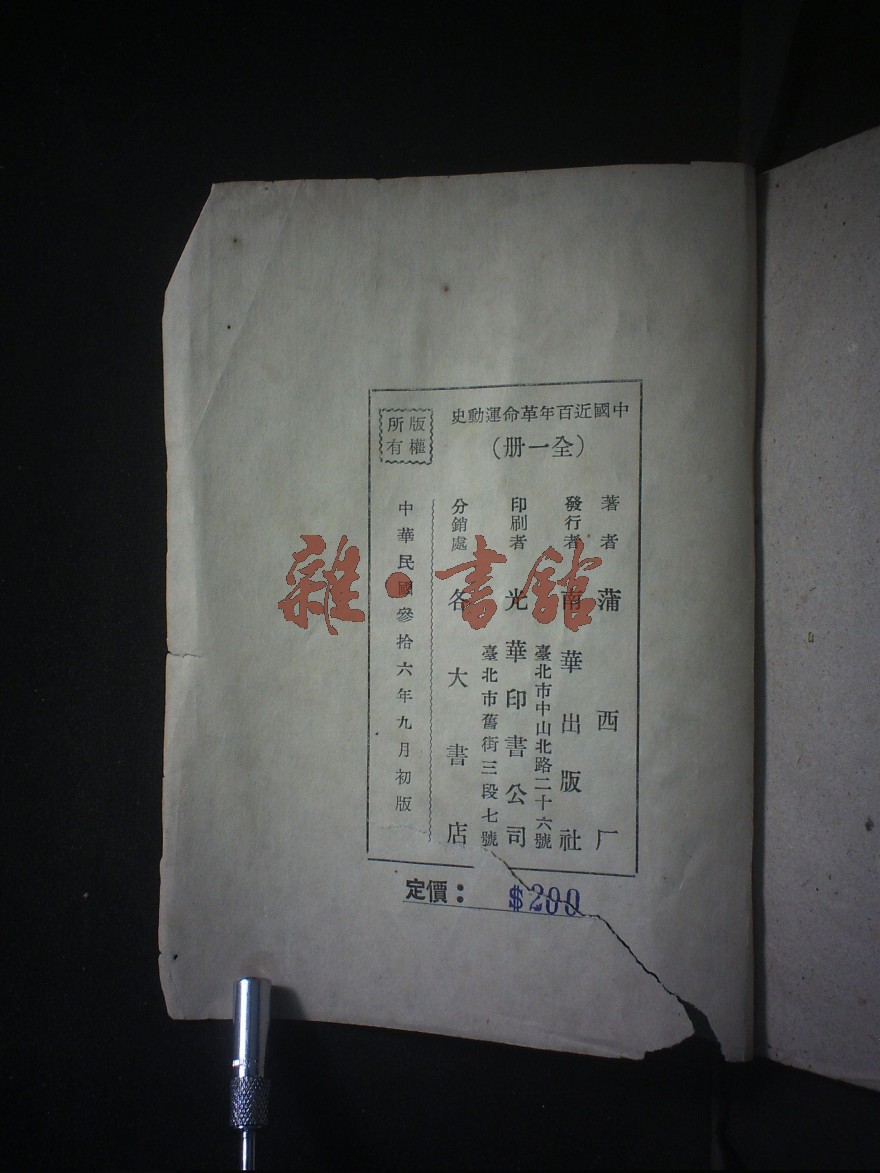 中國近百年革命運動史
（全一册）
版權
所有
著者 蒲西厂
發行者 南華出版社
臺北市中山北路二十六號
印刷者 光華印書公司
臺北市舊街三段七號
分銷處 各大書店
中華民國參拾六年九月初版
定價： $200
雜·書館